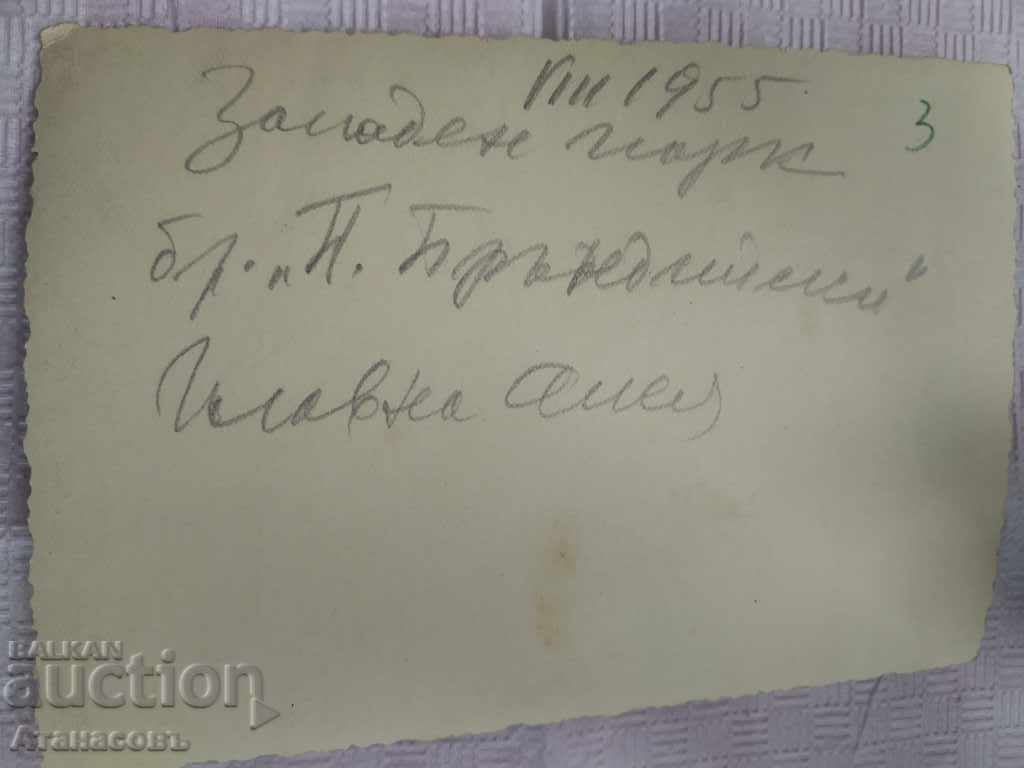 VIII 1955.
Западен парк 3
бр. „П. Бръндийски"
Главна алея
BALKAN
auction
Атанасовъ